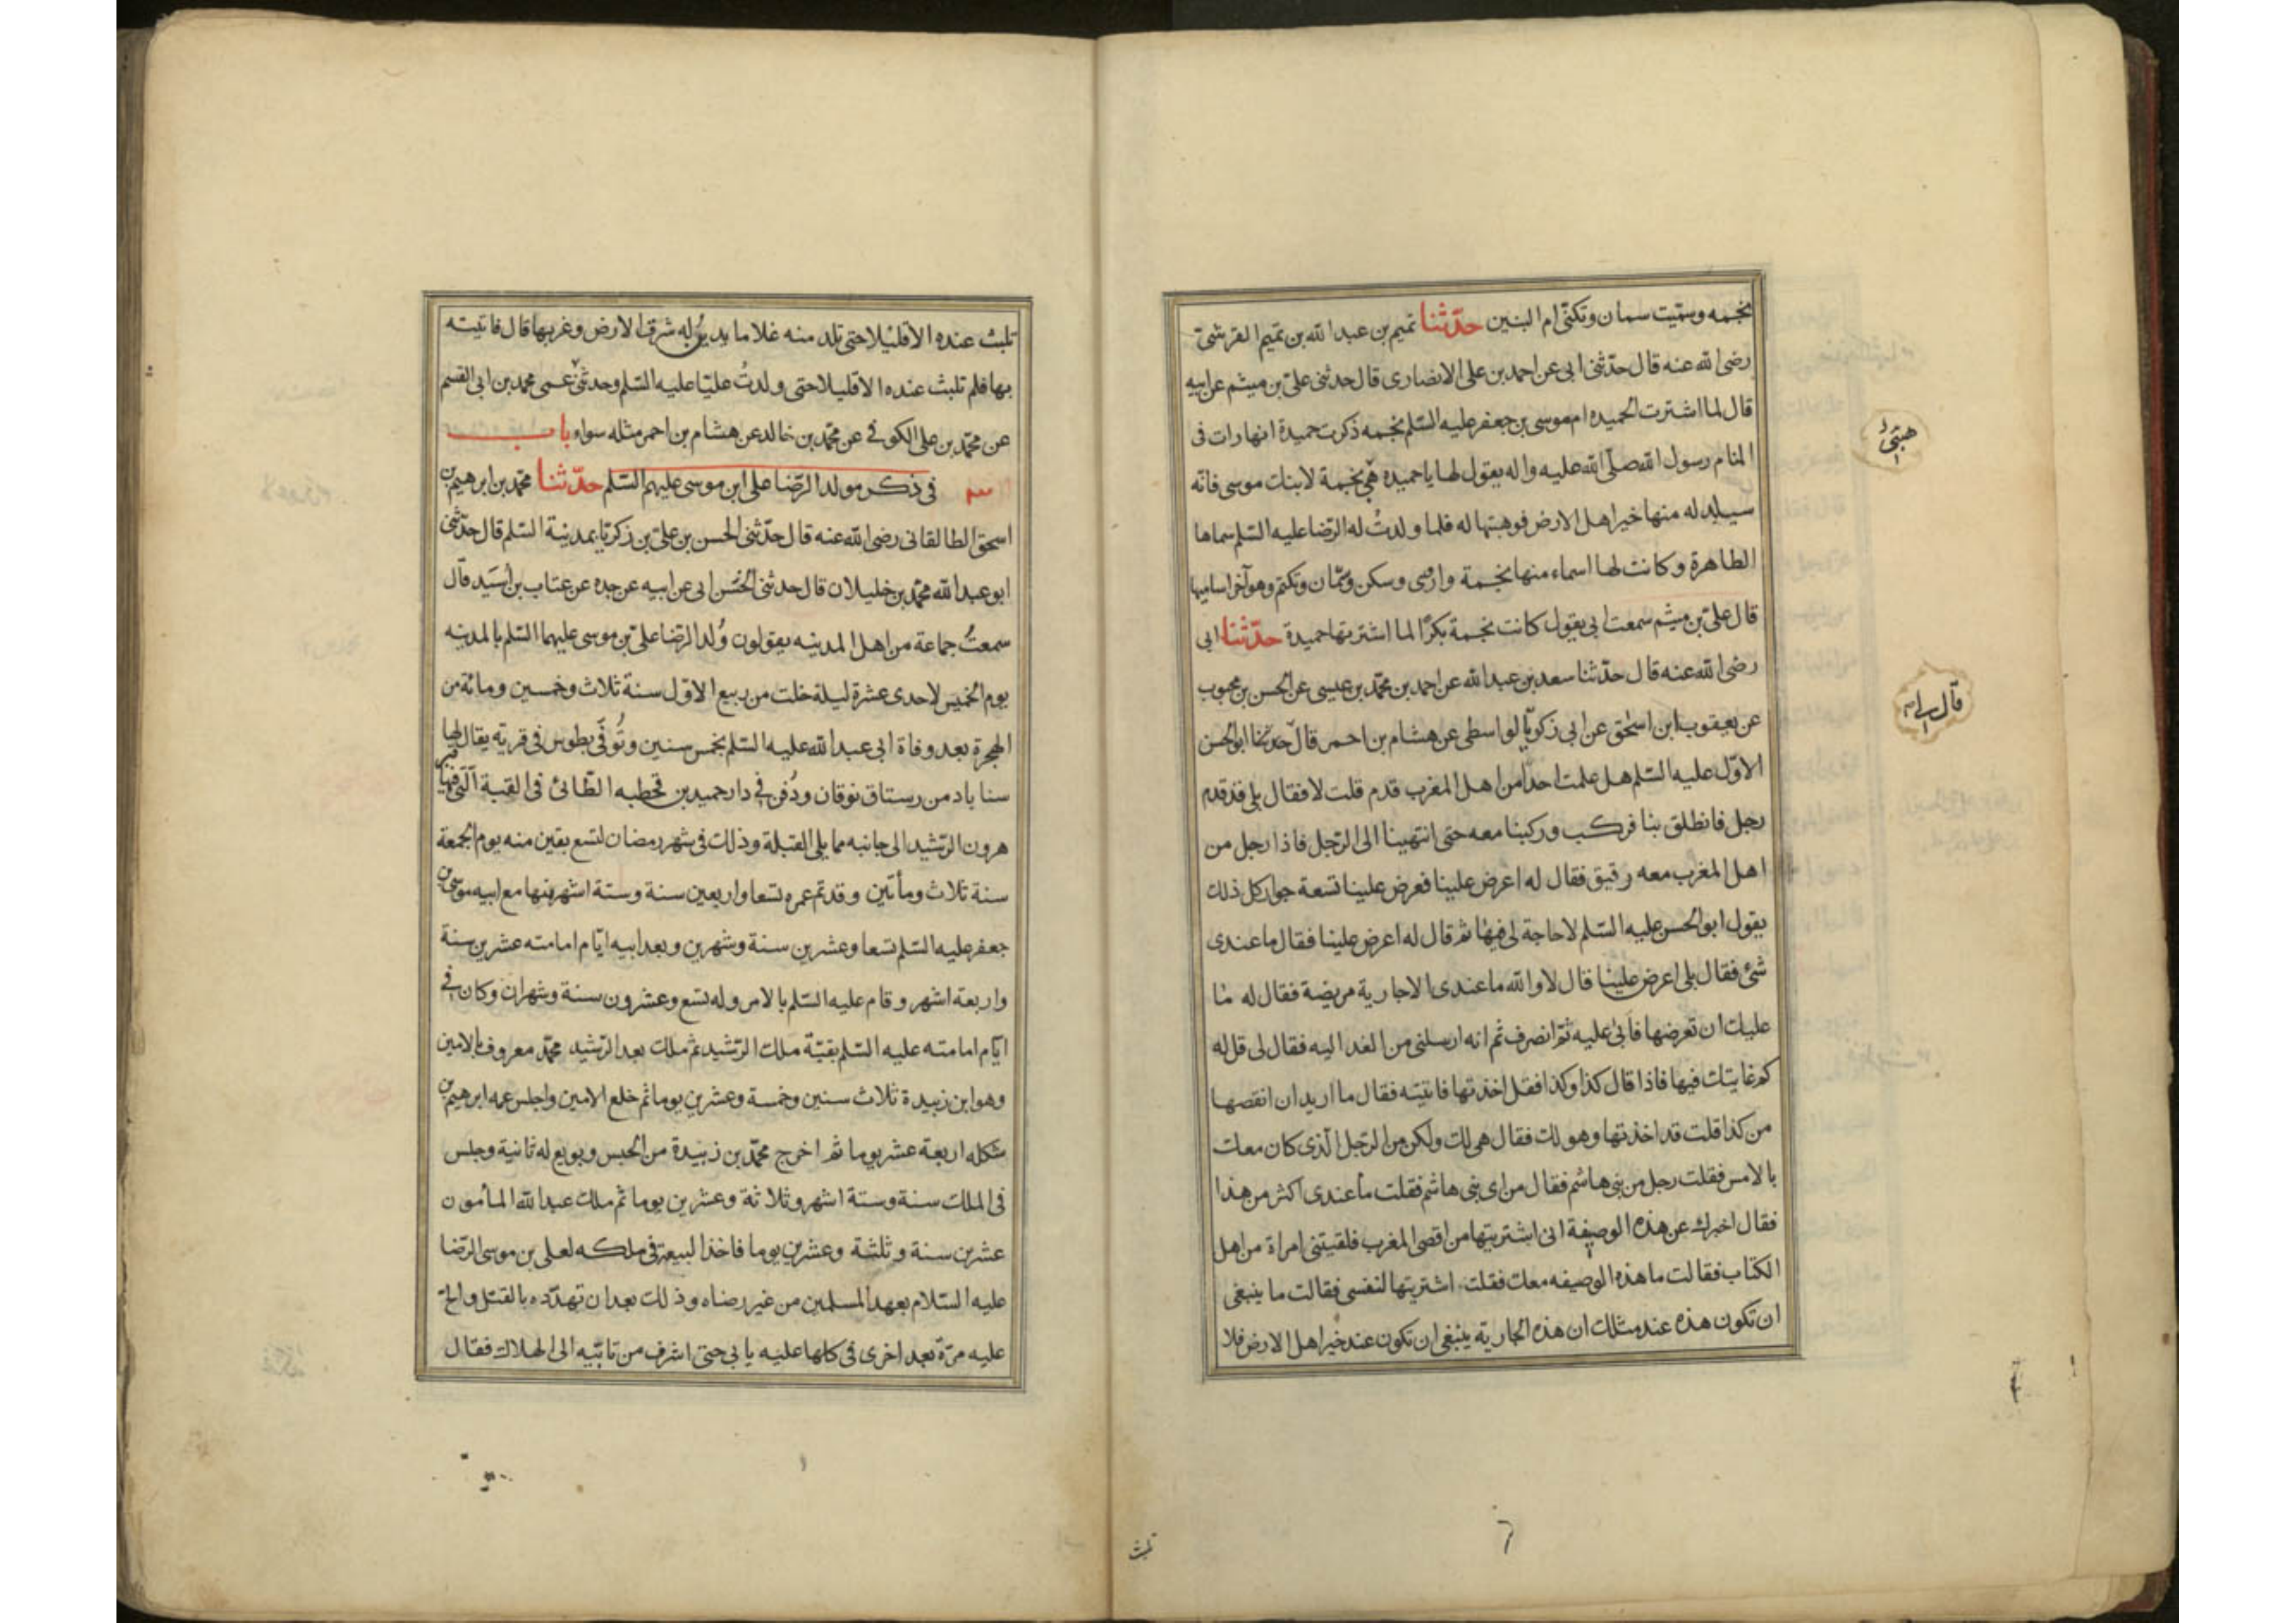 بنجمه وسمّيت سمان وتكنّى ام البنين حدّثنا تميم بن عبد الله بن تميم القرشىّ
رضى الله عنه قال حدّثنى ابى عن احمد بن على الانصارى قال حدثنى علىّ بن ميثم عن ابيه
قال لما اشترت الحميده ام موسى بن جعفر عليه السّلم نجمه ذكرت حميدة انها رات فى
هبتى
المنام رسول الله صلّى الله عليه واله يقول لها يا حميده هى نجمة لابنك موسى فانّه
سيلد له منها خير اهل الارض فوهبتها له فلما ولدتُ له الرّضا عليه السّلم سماها
الطاهرة وكانت لها اسماء منها نجمة واروى وسكن وسمّان وتكتم وهو آخر اساميها
قال علىّ بن ميثم سمعت ابى يقول كانت نجمة بكرًا لما اشترتها حميدة حدّثنا ابى
رضى الله عنه قال حدّثنا سعد بن عبد الله عن احمد بن محمّد بن عيسى عن الحسن بن محبوب
عن يعقوب ابن اسحق عن ابى زكريّا الواسطى عن هشام بن احمر قال حدثنا ابو الحسن
قال لى
الاوّل عليه السّلم هل علمت احدا من اهل المغرب قدم قلت لا فقال بلى قد قدم
رجل فانطلق بنا فركب وركبنا معه حتى انتهينا الى الرّجل فاذا رجل من
اهل المغرب معه رقيق فقال له اعرض علينا فعرض علينا تسعة جوار كل ذلك
يقول ابو الحسن عليه السّلم لا حاجة لى فيها ثم قال له اعرض علينا فقال ما عندى
شئ فقال بلى اعرض علينا قال لا والله ما عندى الا جارية مريضة فقال له ما
عليك ان تعرضها فأبى عليه ثم انصرف ثم انه ارسلنى من الغد اليه فقال لى قل له
كم غايتك فيها فاذا قال كذا وكذا فقل اخذتها فاتيته فقال ما اريد ان انقصها
من كذا قلت قد اخذتها وهو لك فقال هى لك ولكن من الرّجل الّذى كان معك
بالامس فقلت رجل من بنى هاشم فقال من اى بنى هاشم فقلت ما عندى اكثر من هذا
فقال اخبرك عن هذه الوصيفة انى اشتريتها من اقصى المغرب فلقيتنى امراة من اهل
الكتاب فقالت ما هذه الوصيفه معك فقلت اشتريتها لنفسى فقالت ما ينبغى
ان تكون هذه عند مثلك ان هذه الجارية ينبغى ان تكون عند خير اهل الارض فلا
تلبث
تلبث عنده الا قليلا حتى تلد منه غلاما يدين له شرق الارض وغربها قال فاتيته
بها فلم تلبث عنده الا قليلا حتى ولدتُ عليّا عليه السّلم وحدثنى عمى محمد بن ابى القسم
عن محمّد بن على الكوفى عن محمّد بن خالد عن هشام بن احمر مثله سواء باب
٣ فى ذكر مولد الرّضا على ابن موسى عليهم السّلم حدّثنا محمد بن ابرهيم بن
اسحق الطالقانى رضى الله عنه قال حدّثنى الحسن بن علىّ بن زكريّا بمدينة السّلم قال حدّثنى
ابو عبد الله محمّد بن خليلان قال حدثنى الحسن ابى عن ابيه عن جده عن عتاب بن أسَيد قال
سمعتُ جماعة من اهل المدينه يقولون وُلد الرّضا علىّ بن موسى عليهما السّلم بالمدينه
يوم الخميس لاحدى عشرة ليلة خلت من ربيع الاوّل سنة ثلاث وخمسين ومائة من
الهجرة بعد وفاة ابى عبد الله عليه السّلم بخمس سنين وتُوفّى بطوس فى قرية يقال لها
سناباد من رستاق نوقان ودُفن فى دار حميد بن قحطبه الطّائى فى القبة الّتى فيها قبر
هرون الرّشيد الى جانبه مما يلى القبلة وذلك فى شهر رمضان لتسع بقين منه يوم الجمعة
سنة ثلاث ومأتين وقد تم عمره تسعا واربعين سنة وستة اشهر منها مع ابيه موسى بن
جعفر عليه السّلم تسعا وعشرين سنة وشهرين وبعد ابيه ايّام امامته عشرين سنة
واربعة اشهر وقام عليه السّلم بالامر وله تسع وعشرون سنة وشهران وكان فى
ايّام امامته عليه السّلم بقيّة ملك الرّشيد ثم ملك بعد الرّشيد محمّد معروف بالامين
وهو ابن زبيدة ثلاث سنين وخمسة وعشرين يوما ثم خلع الامين واجلس عمه ابرهيم بن
شكله اربعة عشر يوما ثم اخرج محمّد بن زبيدة من الحبس وبويع له ثانية وجلس
فى الملك سنة وستة اشهر وثلاثة وعشرين يوما ثم ملك عبد الله المأمون
عشرين سنة وثلثة وعشرين يوما فاخذ البيعة فى ملكه لعلى بن موسى الرّضا
عليه السّلام بعهد المسلمين من غير رضاه وذلك بعد ان تهدّده بالقتل والحّ
عليه مرّة بعد اخرى فى كلها عليه يابى حتى اشرف من تابّيه الى الهلاك فقال